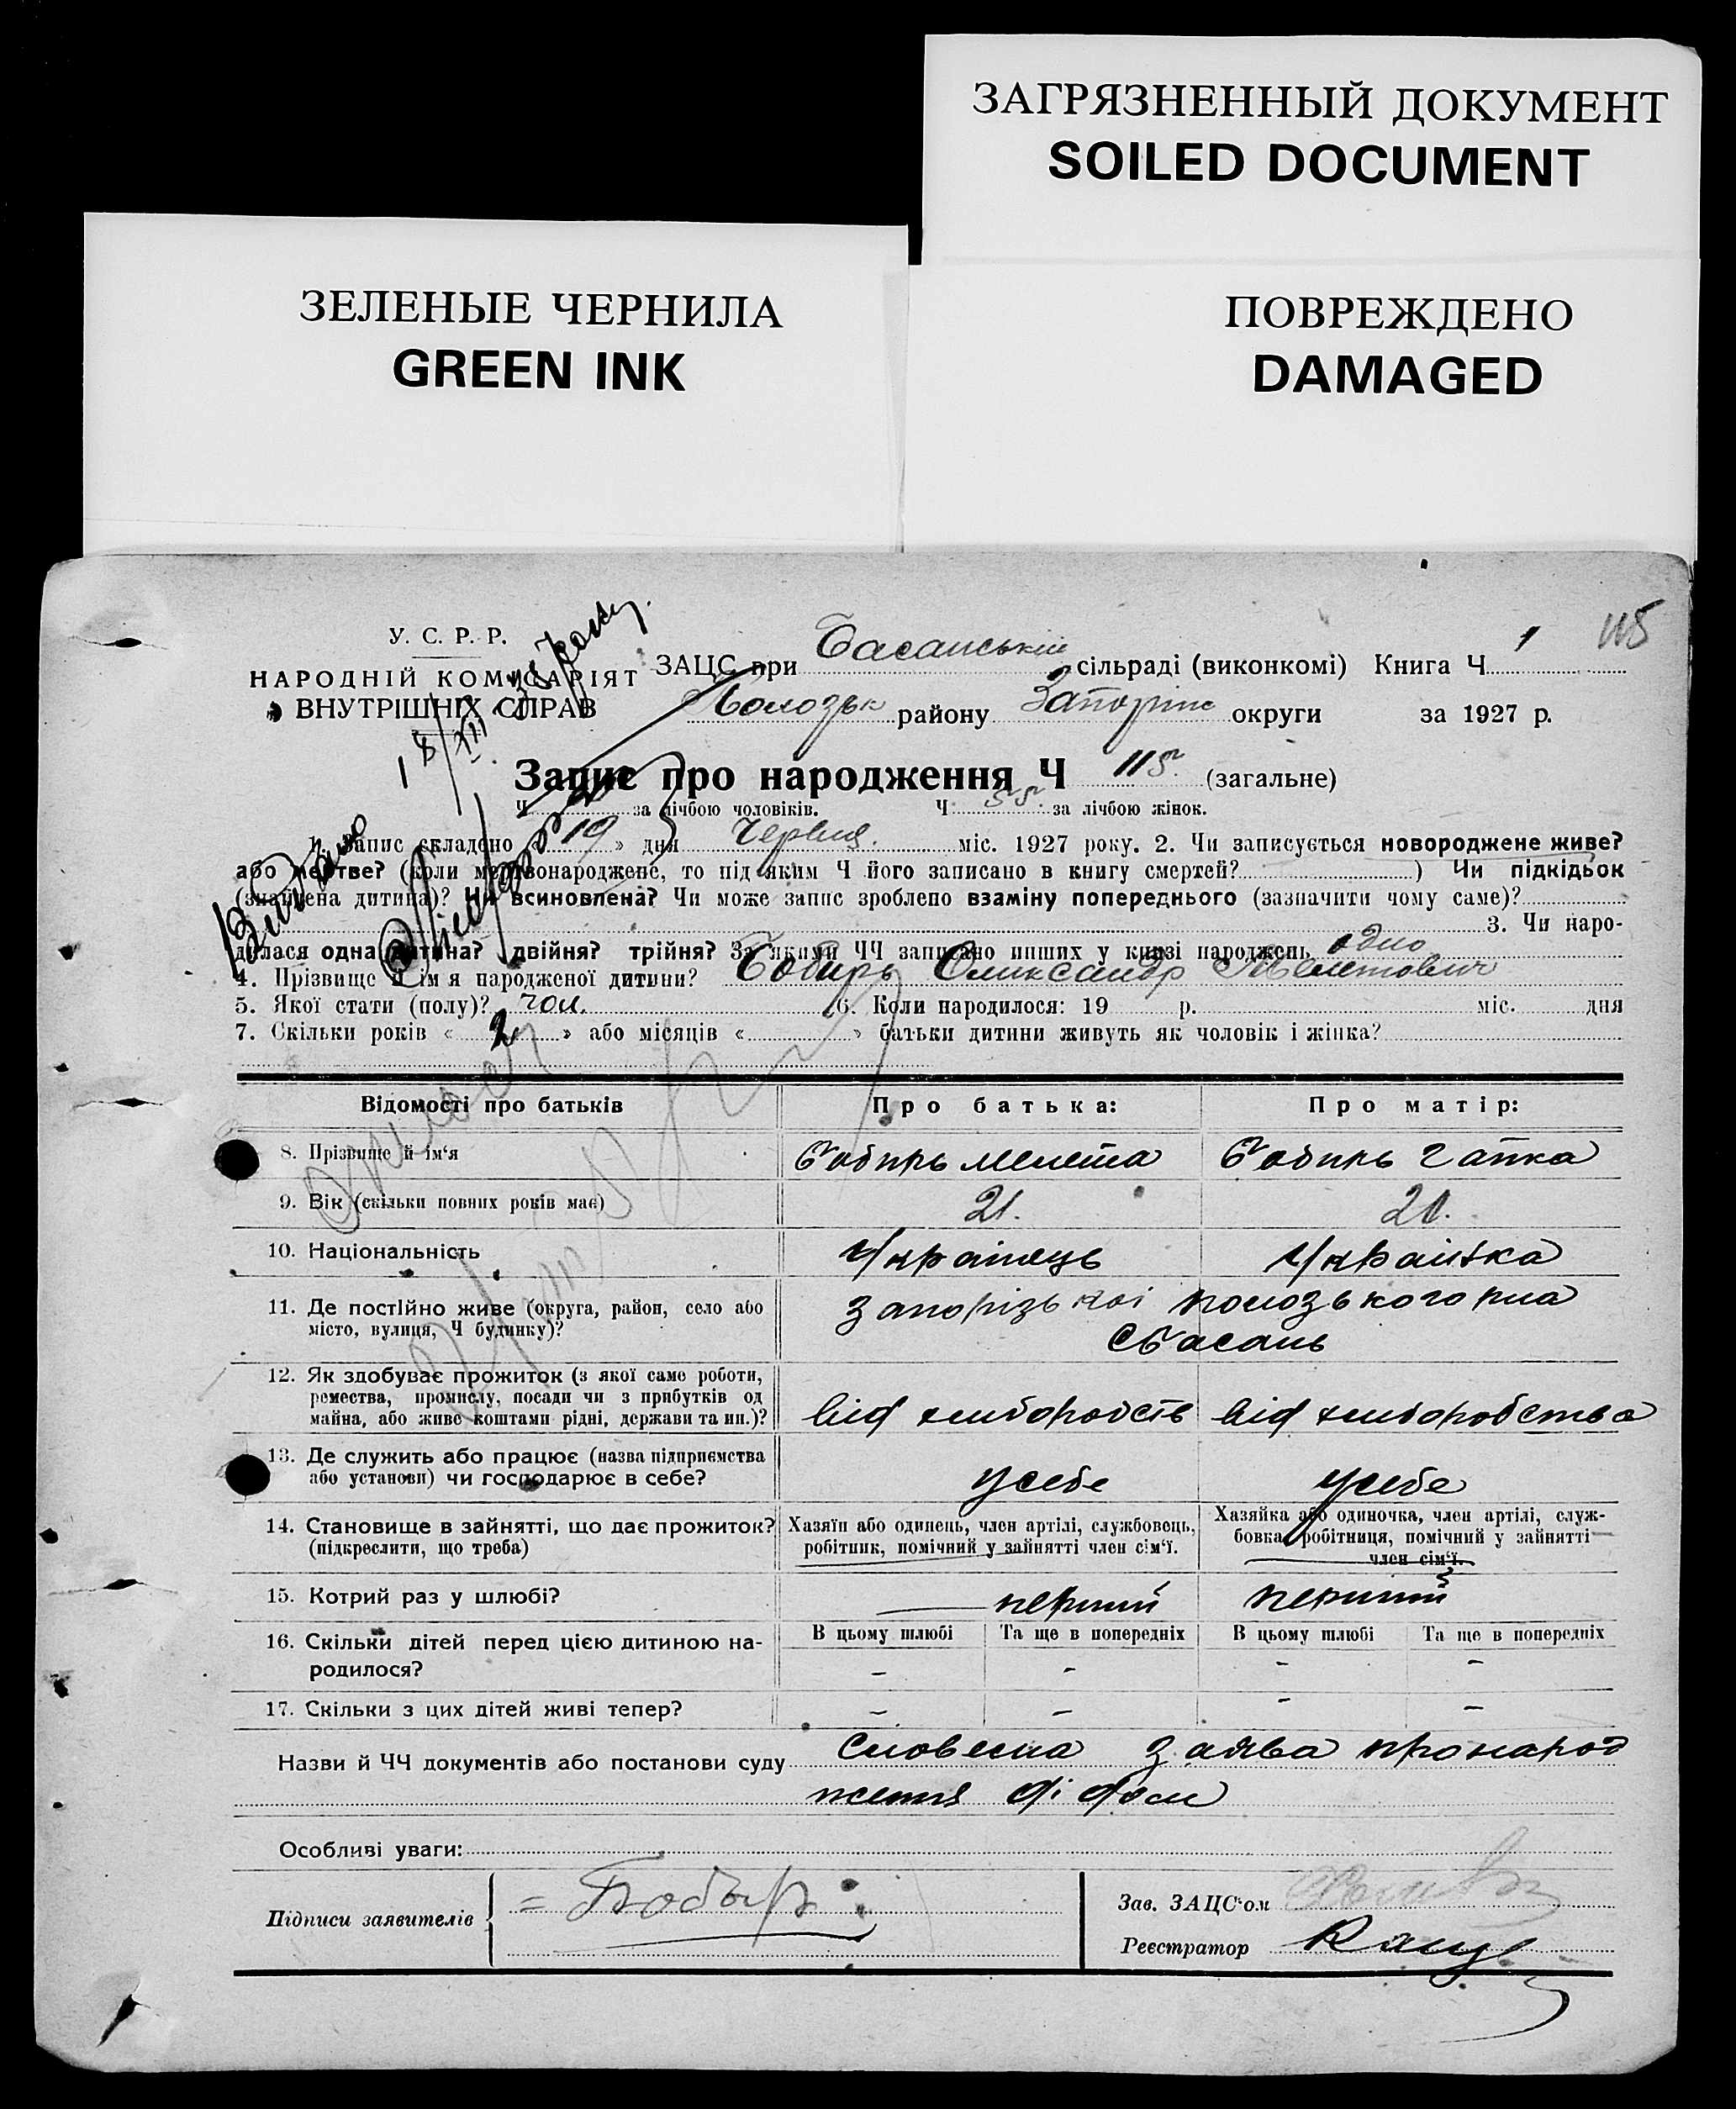 ЗАГРЯЗНЕННЫЙ ДОКУМЕНТ
SOILED DOCUMENT
ЗЕЛЕНЫЕ ЧЕРНИЛА
GREEN INK
ПОВРЕЖДЕНО
DAMAGED
115
У. С. Р. Р.
НАРОДНІЙ КОМІСАРІЯТ
ВНУТРІШНІХ СПРАВ
ЗАЦС при Басанській сільраді (виконкомі) Книга Ч 1
району округи за 1927 р.
18/XII 38 року.
Запис про народження Ч 115 (загальне)
Ч за лічбою чоловіків. Ч 55 за лічбою жінок.
1. Запис складено « 19 » дня Червня. міс. 1927 року. 2. Чи записується новороджене живе?
або мертве? (коли мертвонароджене, то під яким Ч його записано в книгу смертей? ) Чи підкідьок
(знайдена дитина)? Чи всиновлена? Чи може запис зроблено взаміну попереднього (зазначити чому саме)?
3. Чи наро-
дилася одна дитина? двійня? трійня? За якими ЧЧ записано инших у книзі народжень одно
4. Прізвище й ім'я народженої дитини? Бобирь Олександр Мелетович
5. Якої стати (полу)? чол. 6. Коли народилося: 19 р. міс. дня
7. Скільки років « 2 » або місяців « » батьки дитини живуть як чоловік і жінка?
Відомості про батьків Про батька: Про матір:
8. Прізвище й ім'я Бобирь Мелета Бобирь Гапка
9. Вік (скільки повних років має) 21. 20.
10. Національність Українець Українка
11. Де постійно живе (округа, район, село або Запорізької пологзького рна
місто, вулиця, Ч будинку)? с Басань
12. Як здобуває прожиток (з якої саме роботи,
ремества, промислу, посади чи з прибутків од
майна, або живе коштами рідні, держави та ин.)? від хліборобств від хліборобства
13. Де служить або працює (назва підприємства
або установи) чи господарює в себе? усебе усебе
14. Становище в зайнятті, що дає прожиток? Хазяїн або одинець, член артілі, службовець, Хазяйка або одиночка, член артілі, служ-
(підкреслити, що треба) робітник, помічний у зайнятті член сім'ї. бовка, робітниця, помічний у зайнятті
член сім'ї.
15. Котрий раз у шлюбі? перший перший
16. Скільки дітей перед цією дитиною на- В цьому шлюбі Та ще в попередніх В цьому шлюбі Та ще в попередніх
родилося? – – – –
17. Скільки з цих дітей живі тепер? – – – –
Назви й ЧЧ документів або постанови суду Словесна заява про народ
ження дідом
Особливі уваги:
Підписи заявителів = Бобырь
Зав. ЗАЦС'ом
Реєстратор